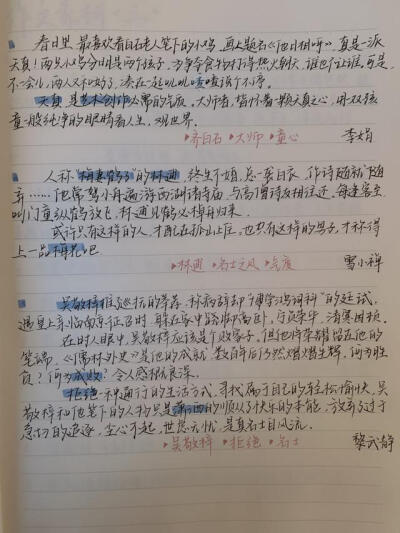 春日里,最喜欢看白石老人笔下的小鸡,画上题名《他日相呼》,真是一派
天真!两只小鸡分明是两个孩子,为争夺食物打得热火朝天,谁也不让谁,可是,
不一会儿,两人又和好了,凑在一起叽叽喳喳说个不停。
天真,是艺术创作必需的气质。大师者,皆怀着一颗天真之心,用双孩
童一般纯净的眼睛看人生,观世界。
·齐白石 ·大师 ·童心 李娟
人称“梅妻鹤子”的林逋,终生不娶,总一袭白衣,作诗随就随
弃……他常驾小舟遍游西湖诸寺庙,与高僧诗友相往还。每逢客至,
叫门童纵鹤放飞,林逋见鹤必棹舟归来。
或许只有这样的人,才配在孤山上住,也只有这样的男子,才称得
上一品梅花吧
·林逋 ·名士之风 ·气度 雪小禅
吴敬梓推辞巡抚的举荐,称病辞却“博学鸿词科”的廷试,
遇皇上亲临南京征召时,躲在家中企脚高卧,守贫乐华,清寒困顿。
在时人眼中,吴敬梓应该是个败家子。但他将荣耀留在他的
笔端,《儒林外史》是他的成就,数百年后仍然熠熠生辉,何为胜
负?何为成败?令人感慨良深。
拒绝一种通行的生活方式,寻找属于自己的轻松愉快,吴
敬梓和他笔下的人物只是潇洒的顺从了快乐的本能,放弃了过于
急切的追逐,尘心不起,世愁无忧,是真名士自风流。
·吴敬梓 ·拒绝 ·名士 黎武静